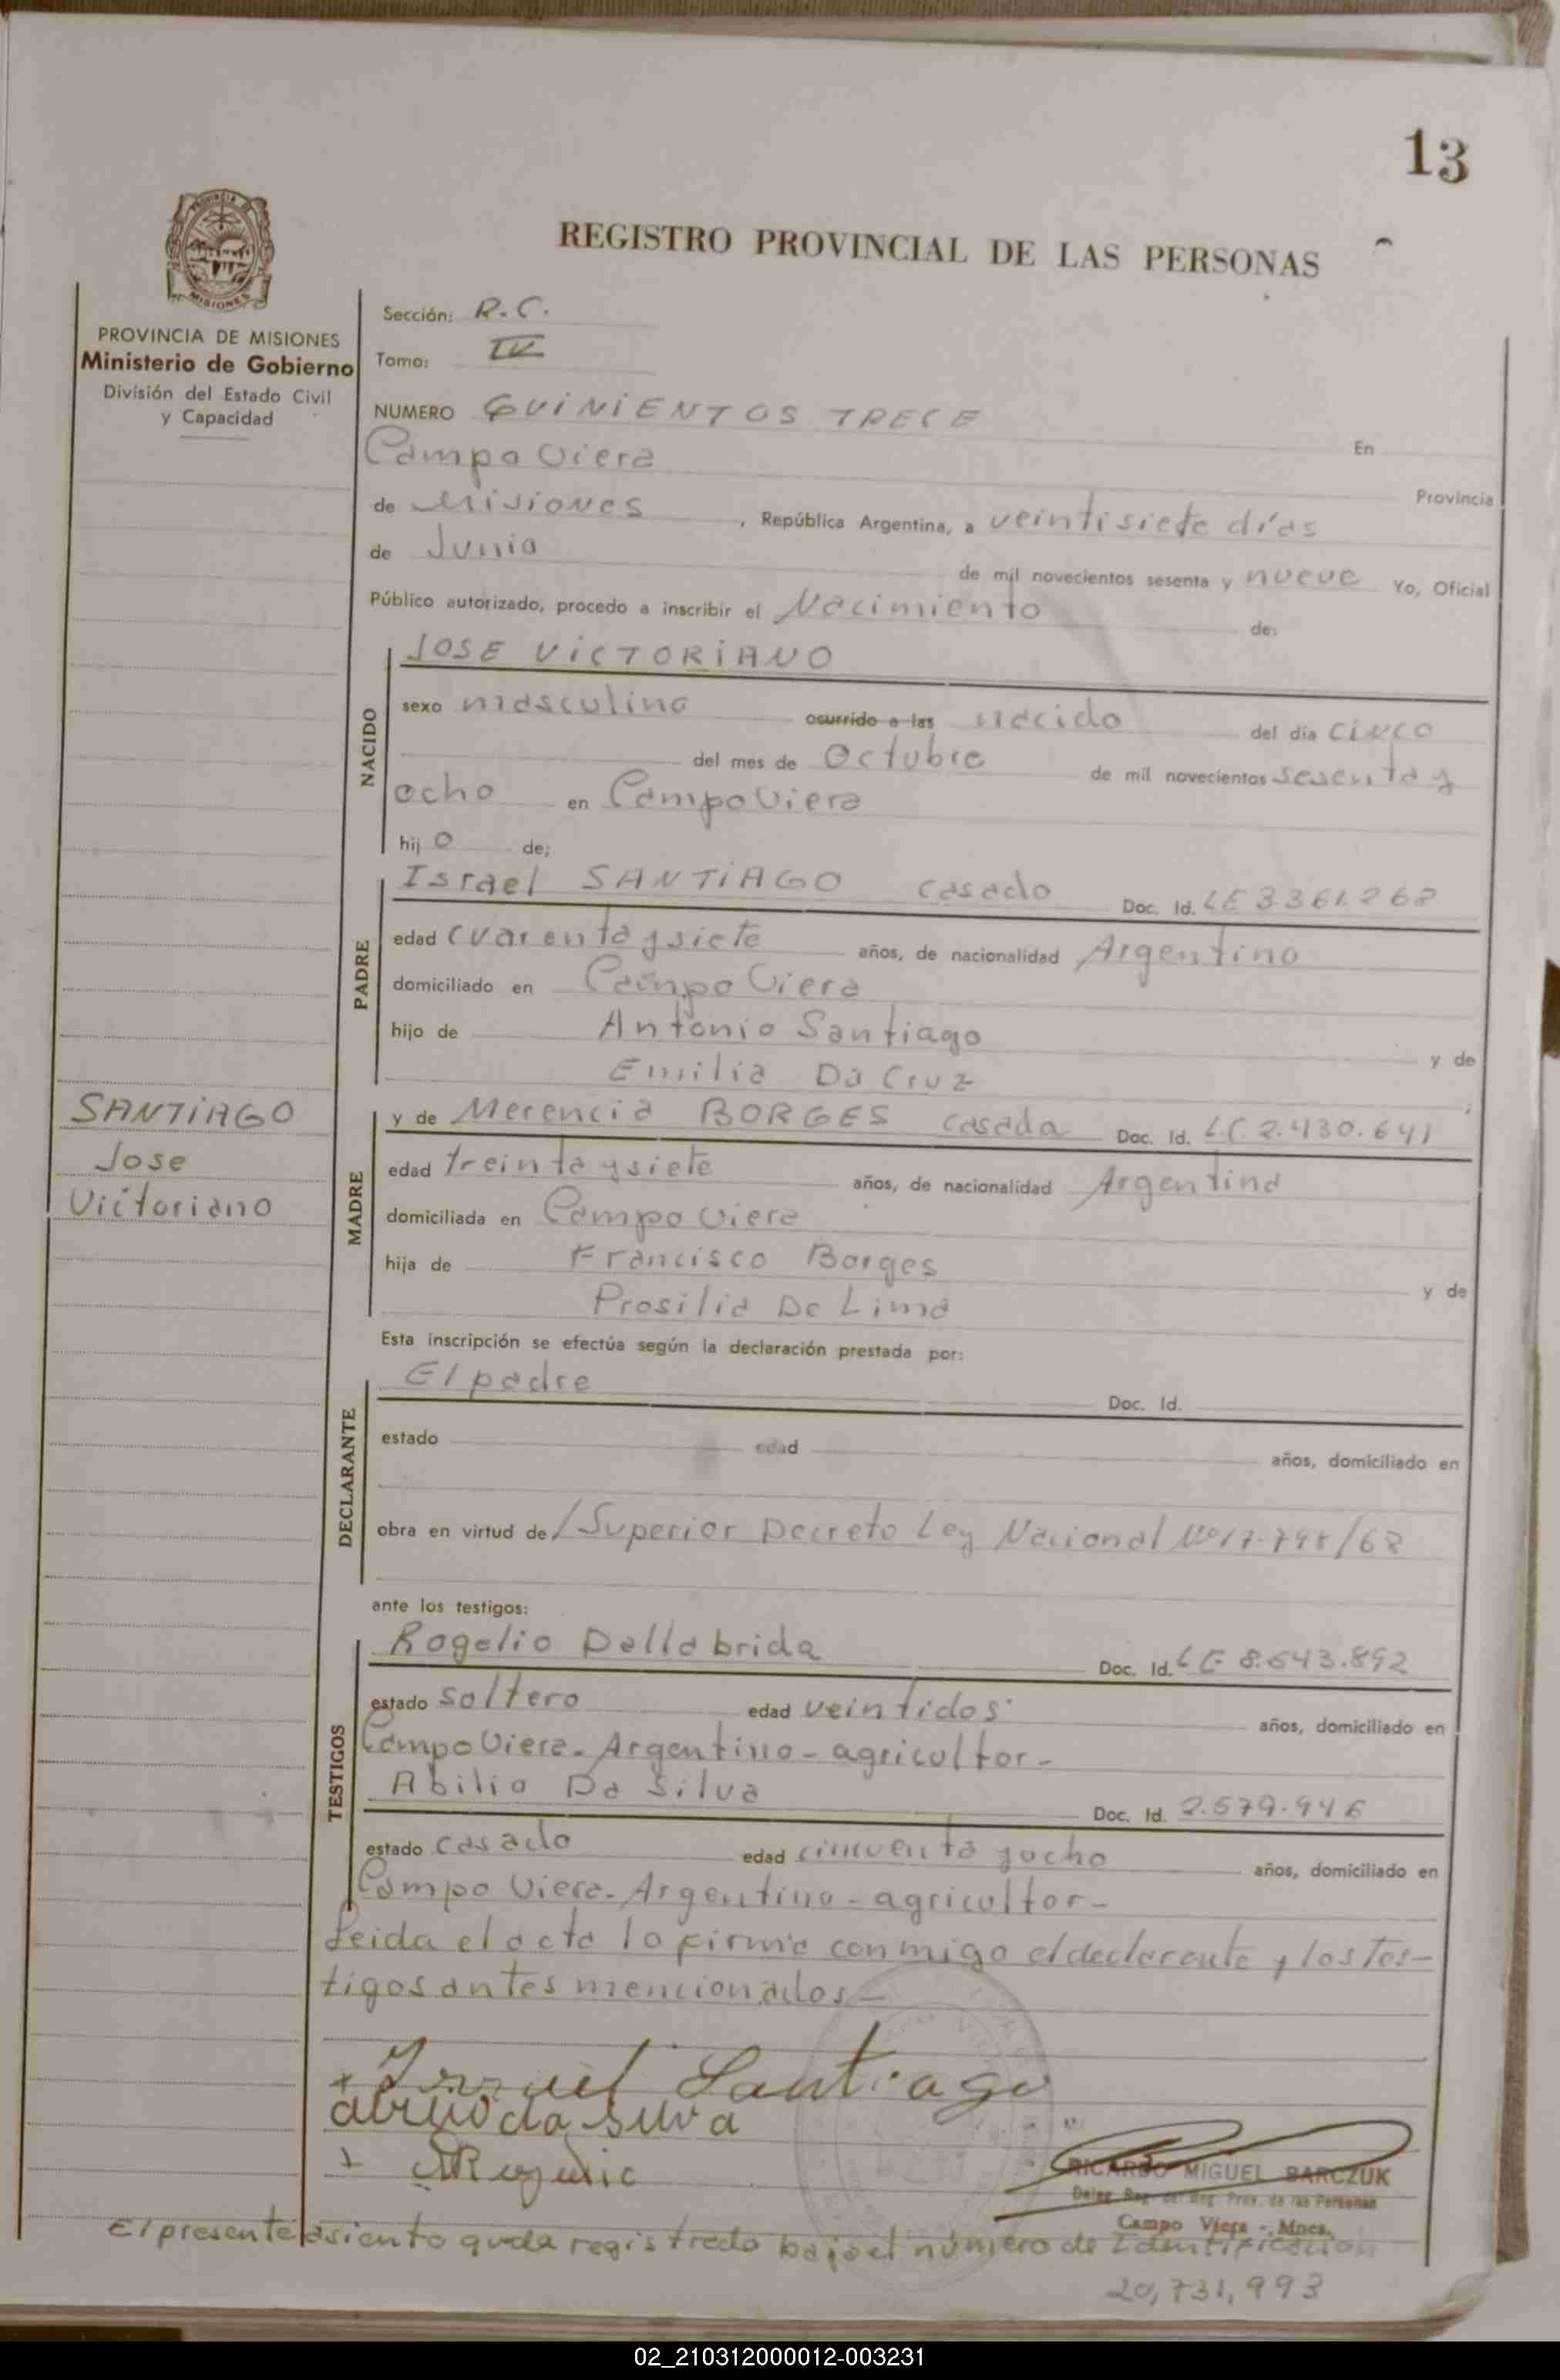 13
REGISTRO PROVINCIAL DE LAS PERSONAS
PROVINCIA DE MISIONES
Ministerio de Gobierno
División del Estado Civil
y Capacidad
Sección: R.C.
Tomo: IV
NUMERO QUINIENTOS TRECE En
Campo Viera Provincia
de Misiones, República Argentina, a veintisiete días
de Junio de mil novecientos sesenta y nueve Yo, Oficial
Público autorizado, procedo a inscribir el Nacimiento de:
NACIDO
JOSE VICTORIANO
sexo masculino ocurrido a las nacido del día cinco
del mes de Octubre de mil novecientos sesenta y
ocho en Campo Viera
hijo de;
PADRE
Israel SANTIAGO casado Doc. Id. LE 3.361.268
edad cuarenta y siete años, de nacionalidad Argentino
domiciliado en Campo Viera
hijo de Antonio Santiago y de
Emilia Da Cruz;
SANTIAGO
Jose
Victoriano
MADRE
y de Merencia BORGES casada Doc. Id. L.C. 2.430.641
edad treinta y siete años, de nacionalidad Argentina
domiciliada en Campo Viera
hija de Francisco Borges y de
Prosilia De Lima
Esta inscripción se efectúa según la declaración prestada por:
DECLARANTE
El padre Doc. Id.
estado edad años, domiciliado en
obra en virtud de/Superior Decreto Ley Nacional Nº 17.798/68
ante los testigos:
TESTIGOS
Rogelio Dallabrida Doc. Id. LE 8.543.892
estado soltero edad veintidos años, domiciliado en
Campo Viera-Argentino-agricultor-
Abilio Da Silva Doc. Id. 2.579.946
estado casado edad cincuenta y ocho años, domiciliado en
Campo Viera-Argentino-agricultor-
Leida el acta lo firma conmigo el declarante y los tes-
tigos antes mencionados-
Israel Santiago
abilio da silva
Rogelio
RICARDO MIGUEL BARCZUK
Deleg. Reg. del Reg. Prov. de las Personas
Campo Viera - Mnes.
El presente asiento queda registrado bajo el número de Identificacion
20,731,993
02_210312000012-003231